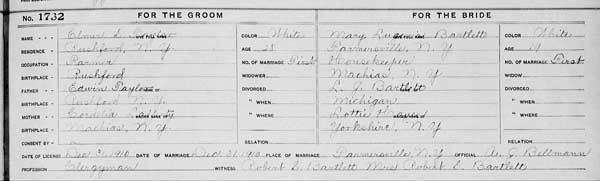 No. 1732 FOR THE GROOM FOR THE BRIDE
NAME Elmer S. COLOR White Mary Bartlett COLOR White
RESIDENCE Rushford, N. Y. AGE 28 Farmersville, N. Y AGE 19
OCCUPATION Farmer NO. OF MARRIAGE First Housekeeper NO. OF MARRIAGE First
BIRTHPLACE Rushford WIDOWER Machias, N. Y WIDOW
FATHER Edwin Taylor DIVORCED L. J. Bartlett DIVORCED
BIRTHPLACE Rushford N. Y. " WHEN Michigan " WHEN
MOTHER Cordelia " WHERE Lottie " WHERE
BIRTHPLACE Machias, N. Y. Yorkshire, N. Y
CONSENT BY RELATION RELATION
DATE OF LICENSE Dec 31, 1910 DATE OF MARRIAGE Dec 31, 1910 PLACE OF MARRIAGE Farmersville, N.Y OFFICIAL A. G. Bellmann
PROFESSION Clergyman WITNESS Robert S. Bartlett Mrs Robert S. Bartlett